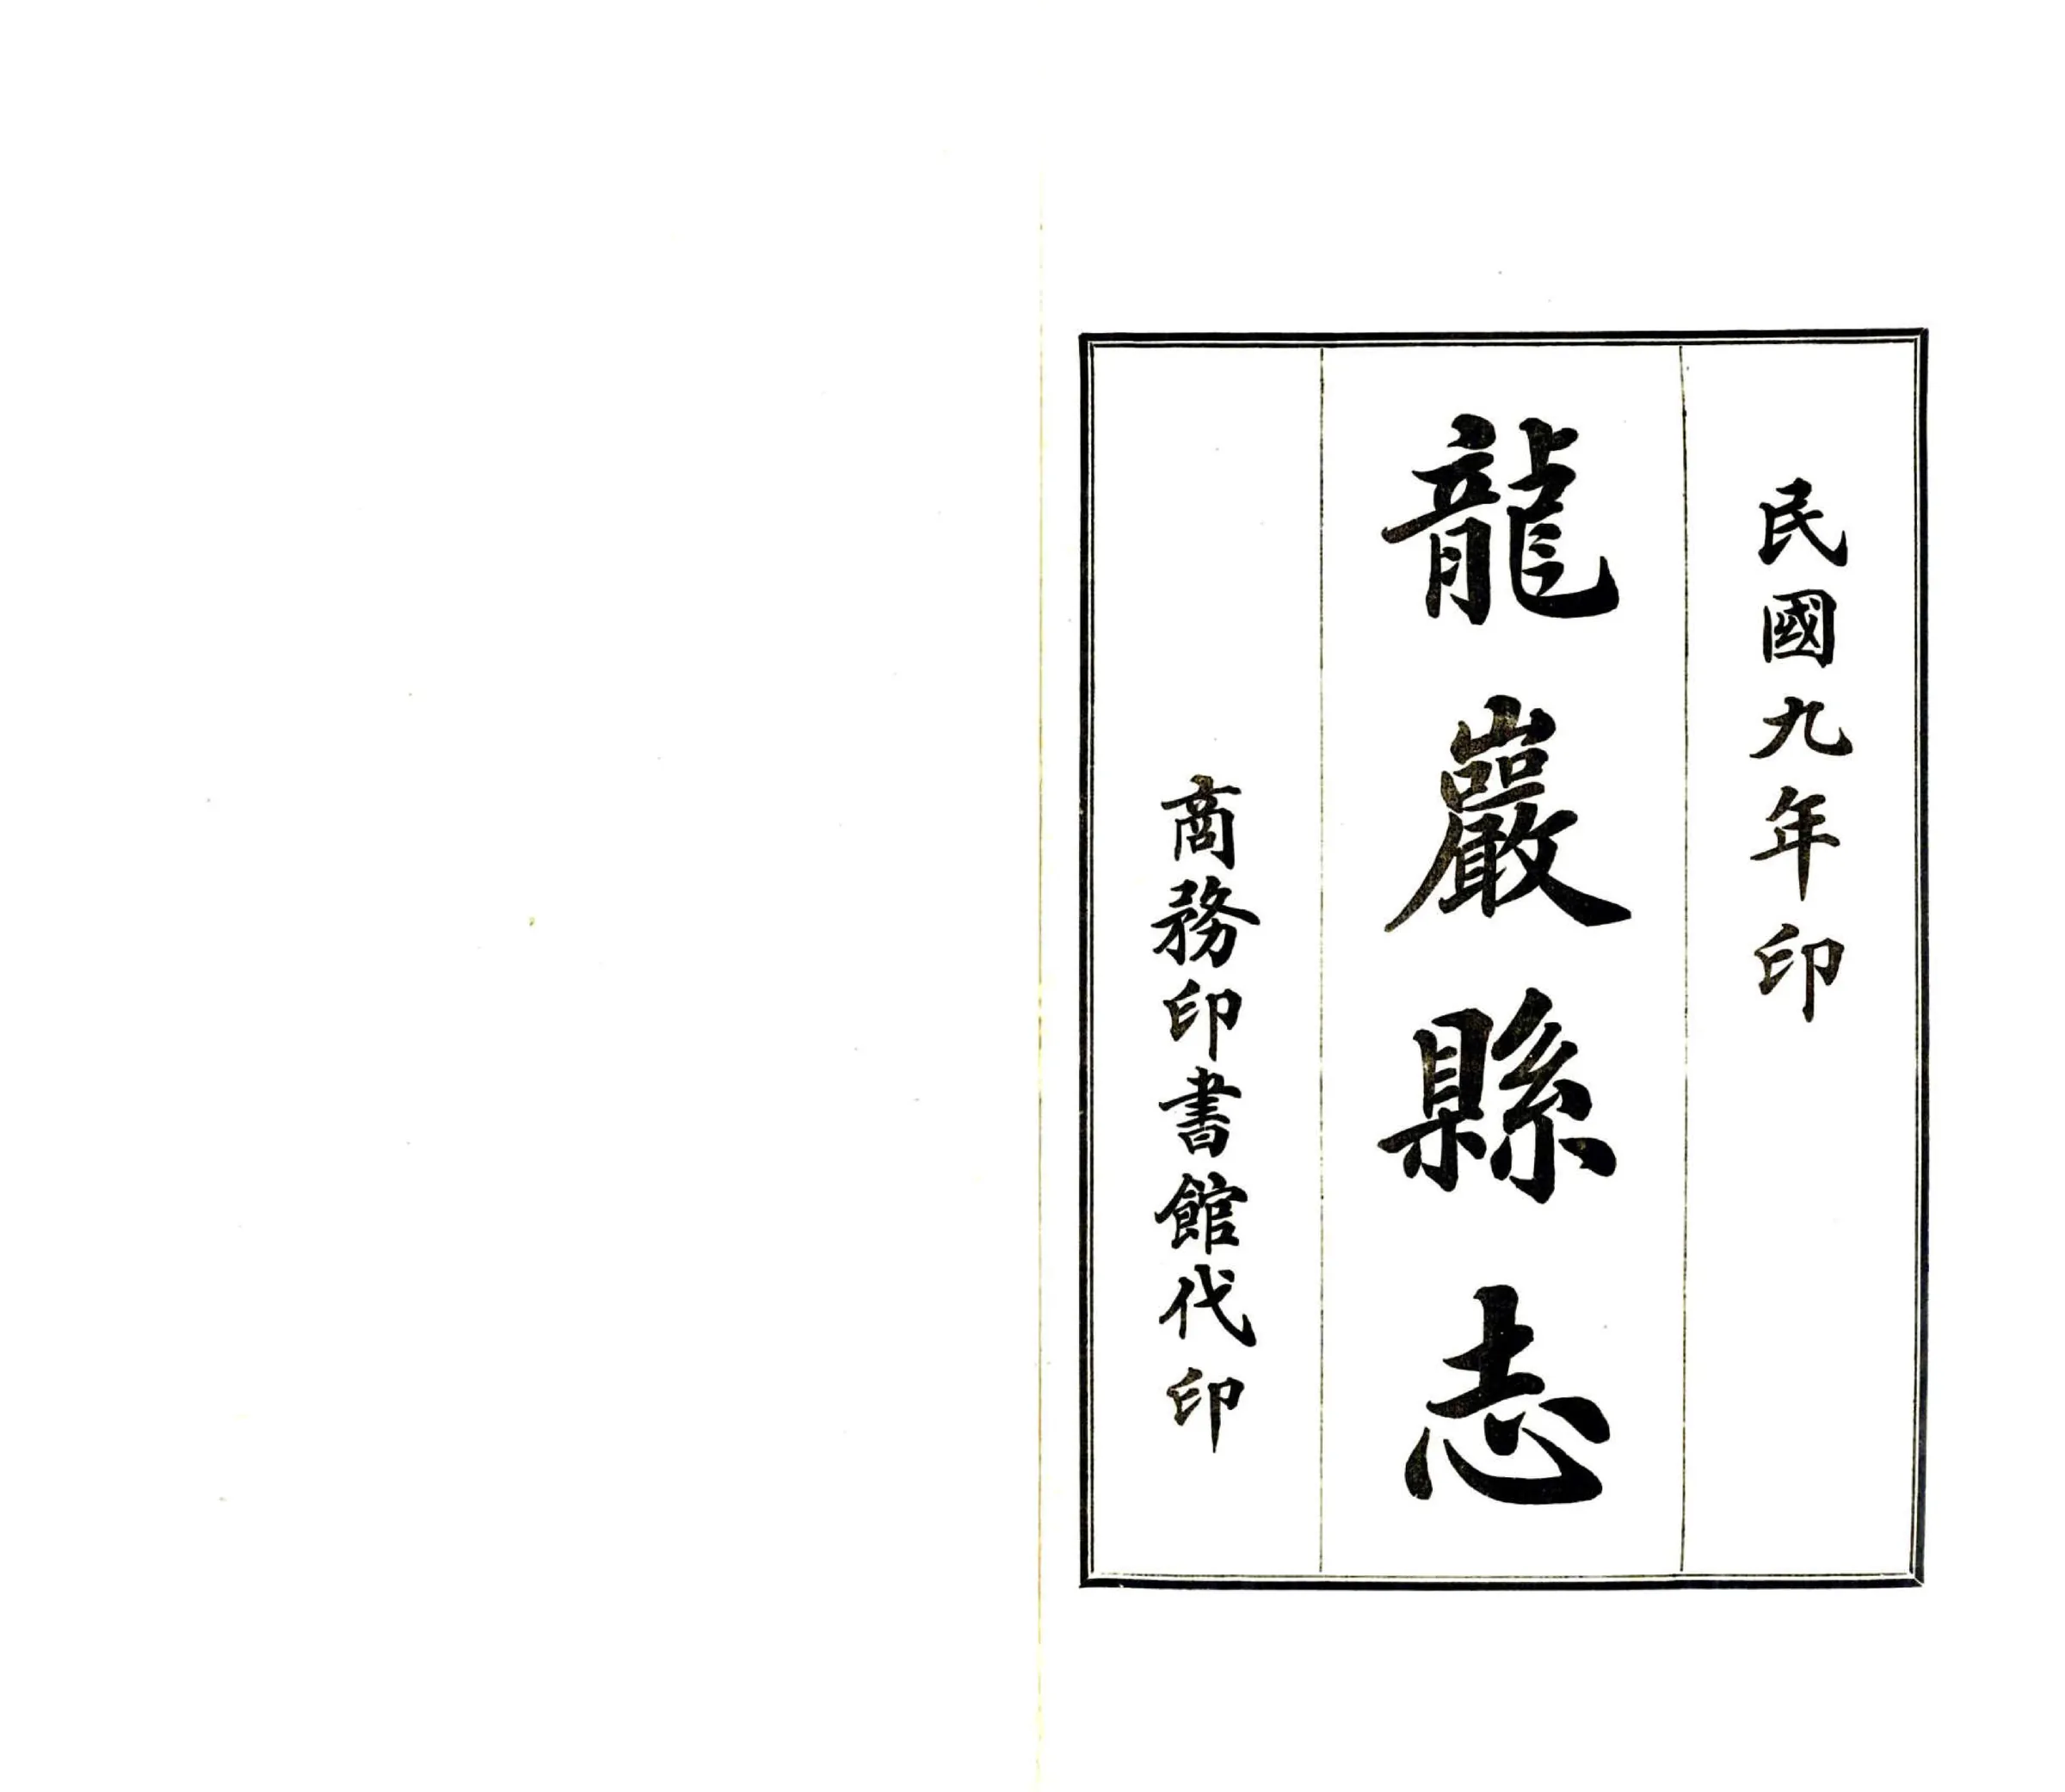 民國九年印
龍巖縣志
商務印書館代印